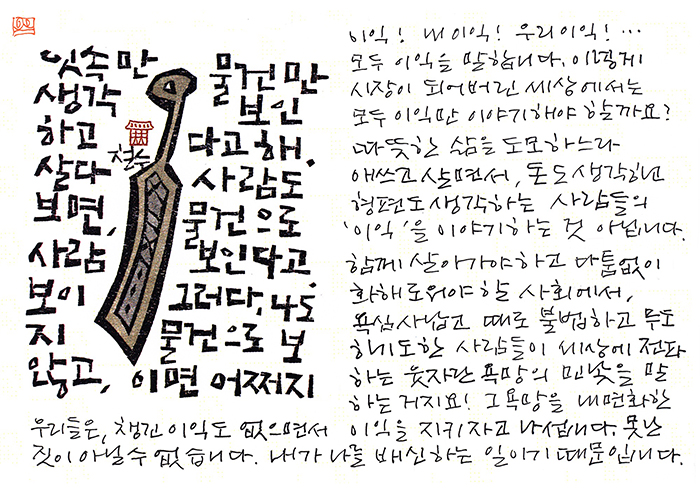 잇속만
생각
하고
살다
보면,
사람
보이
지
않고,
물건만
보인
다고 해.
사람도
물건으로
보인다고.
그러다,
물건으로 보
이면 어쩌지
철수
이익! 내 이익! 우리 이익! …
모두 이익을 말합니다. 이렇게
시장이 되어버린 세상에서는
모두 이익만 이야기해야 할까요?
따뜻한 삶을 도모하느라
애쓰고 살면서, 돈도 생각하고
형편도 생각하는 사람들의
'이익'을 이야기하는 것 아닙니다.
함께 살아가야하고 다툼없이
화해로워야 할 사회에서,
욕심사납고 때로 불법하고 무도
하기도한 사람들이 세상에 전파
하는 웃자란 욕망의 민낯을 말
하는 거지요! 그 욕망을 내면화한
우리들은, 챙긴 이익도 없으면서 이익을 지키자고 나섭니다. 못난
짓이 아닐 수 없습니다. 내가 나를 배신하는 일이기 때문입니다.